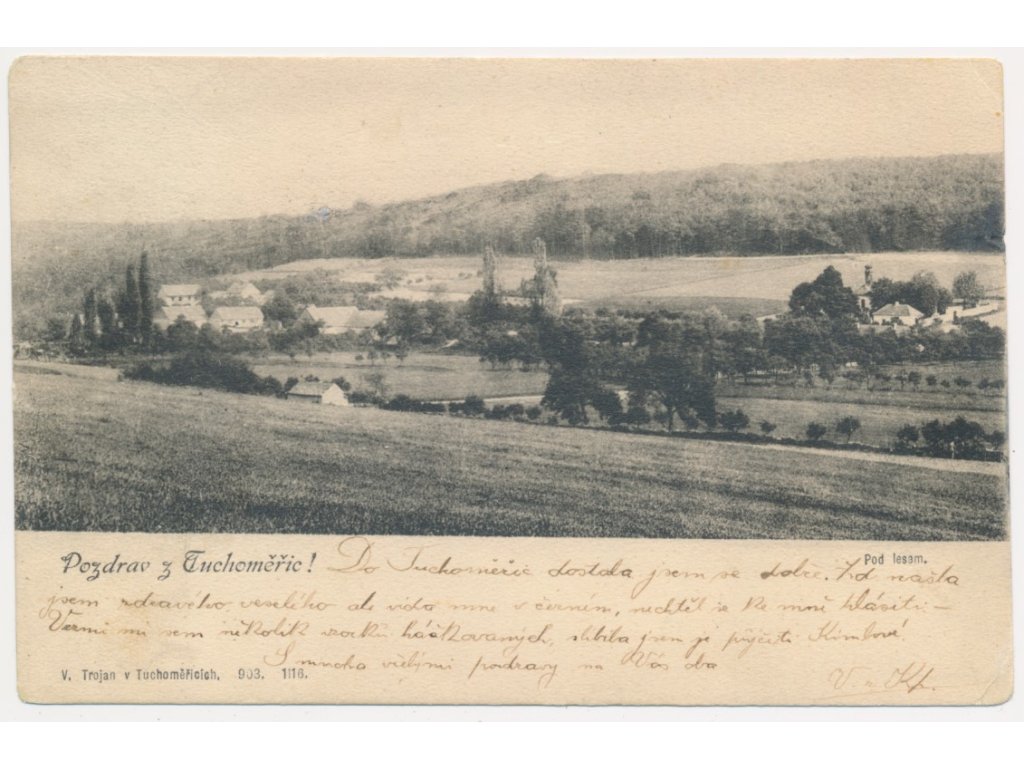 Pozdrav z Tuchoměřic! Do Tuchoměřic dostala jsem se dobře. našla
Pod lesem.
jsem zdravého, veselého ale vida mne v černém, nechtěl se ke mně hlásiti –
Vezmi mi sem několik vzorků háčkovaných, slíbila jsem je půjčiti
S mnoha vřelými pozdravy na Vás oba
V. Trojan v Tuchoměřicích, 903. 1116.